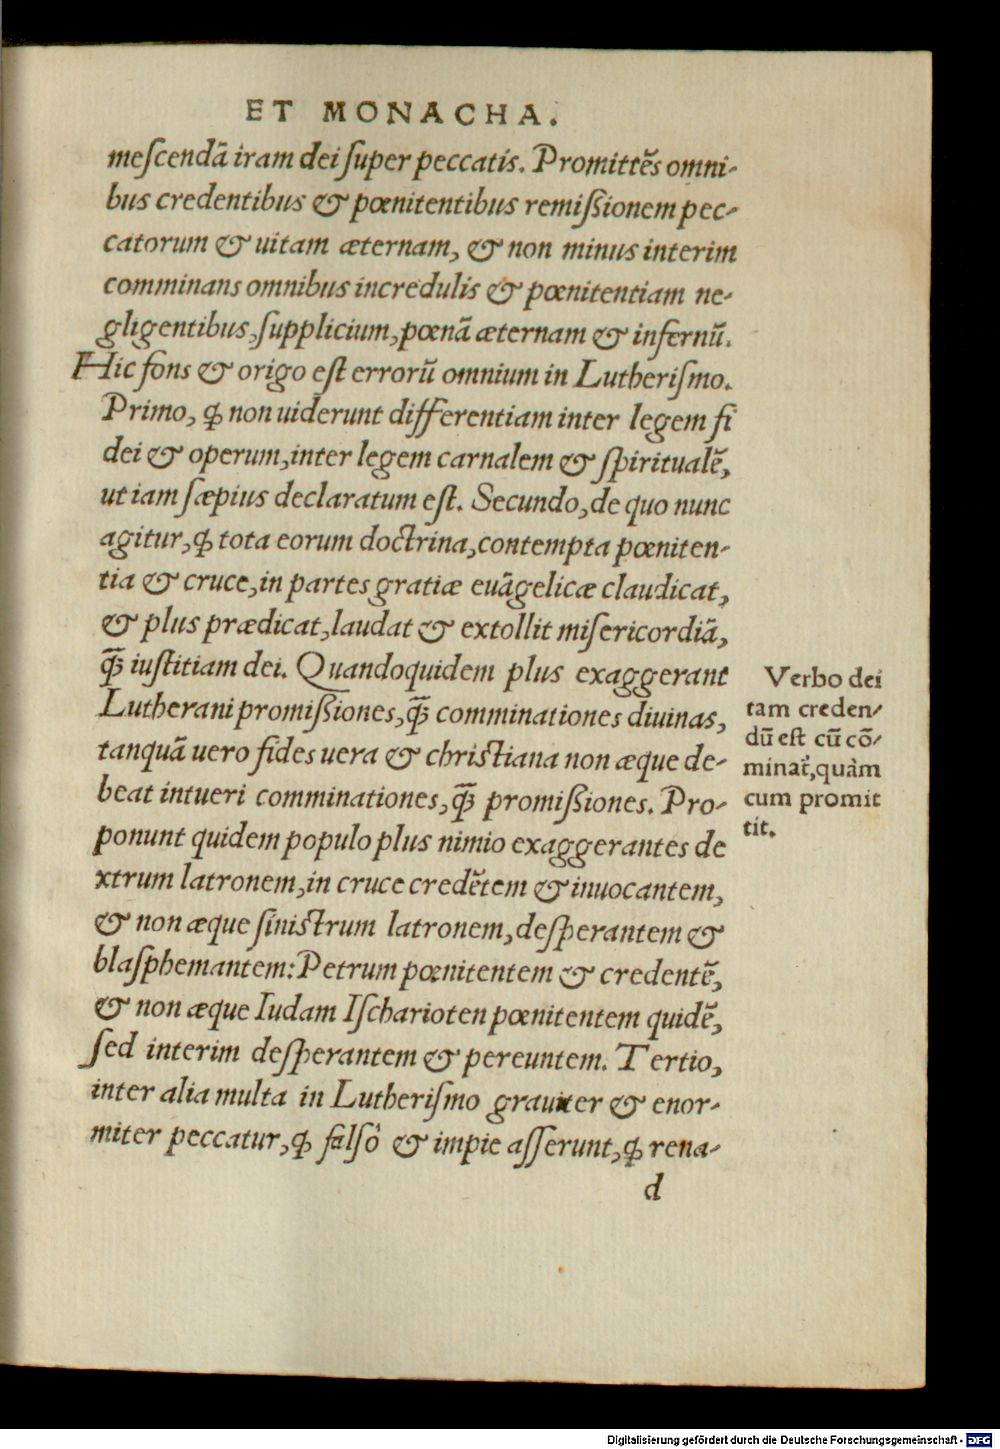 ET MONACHA.
meſcendā iram dei ſuper peccatis. Promittēs omni-
bus credentibus & pœnitentibus remiſſionem pec-
catorum & uitam æternam, & non minus interim
comminans omnibus incredulis & pœnitentiam ne-
gligentibus, ſupplicium, pœnā æternam & infernū.
Hic fons & origo eſt errorū omnium in Lutheriſmo.
Primo, ꝙ non uiderunt differentiam inter legem fi
dei & operum, inter legem carnalem & ſpiritualē,
ut iam ſæpius declaratum eſt. Secundo, de quo nunc
agitur, ꝙ tota eorum doctrina, contempta pœniten-
tia & cruce, in partes gratiæ euāgelicæ claudicat,
& plus prædicat, laudat & extollit miſericordiā,
ꝙ̃ iuſtitiam dei. Quandoquidem plus exaggerant
Lutherani promiſſiones, ꝙ̃ comminationes diuinas,
tanquā uero fides uera & chriſtiana non æque de-
beat intueri comminationes, ꝙ̃ promiſſiones. Pro-
ponunt quidem populo plus nimio exaggerantes de
xtrum latronem, in cruce credētem & inuocantem,
& non æque ſiniſtrum latronem, deſperantem &
blaſphemantem: Petrum pœnitentem & credentē,
& non æque Iudam Iſcharioten pœnitentem quidē,
ſed interim deſperantem & pereuntem. Tertio,
inter alia multa in Lutheriſmo grauiter & enor-
miter peccatur, ꝙ falſò & impie aſſerunt, ꝙ rena-
d
Verbo dei
tam creden-
dū eſt cū cō-
minat᷑, quàm
cum promit
tit.
Digitalisierung gefördert durch die Deutsche Forschungsgemeinschaft - DFG